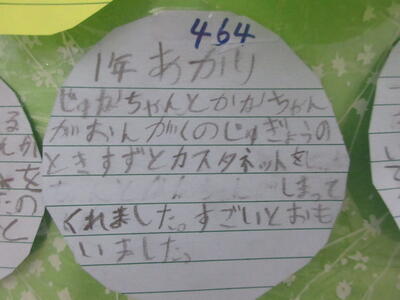 464
1年 あかり
じゅなちゃんとかなちゃん
がおんがくのじゅぎょうの
ときすずとカスタネットを
しまって
くれました。すごいとおも
いました。